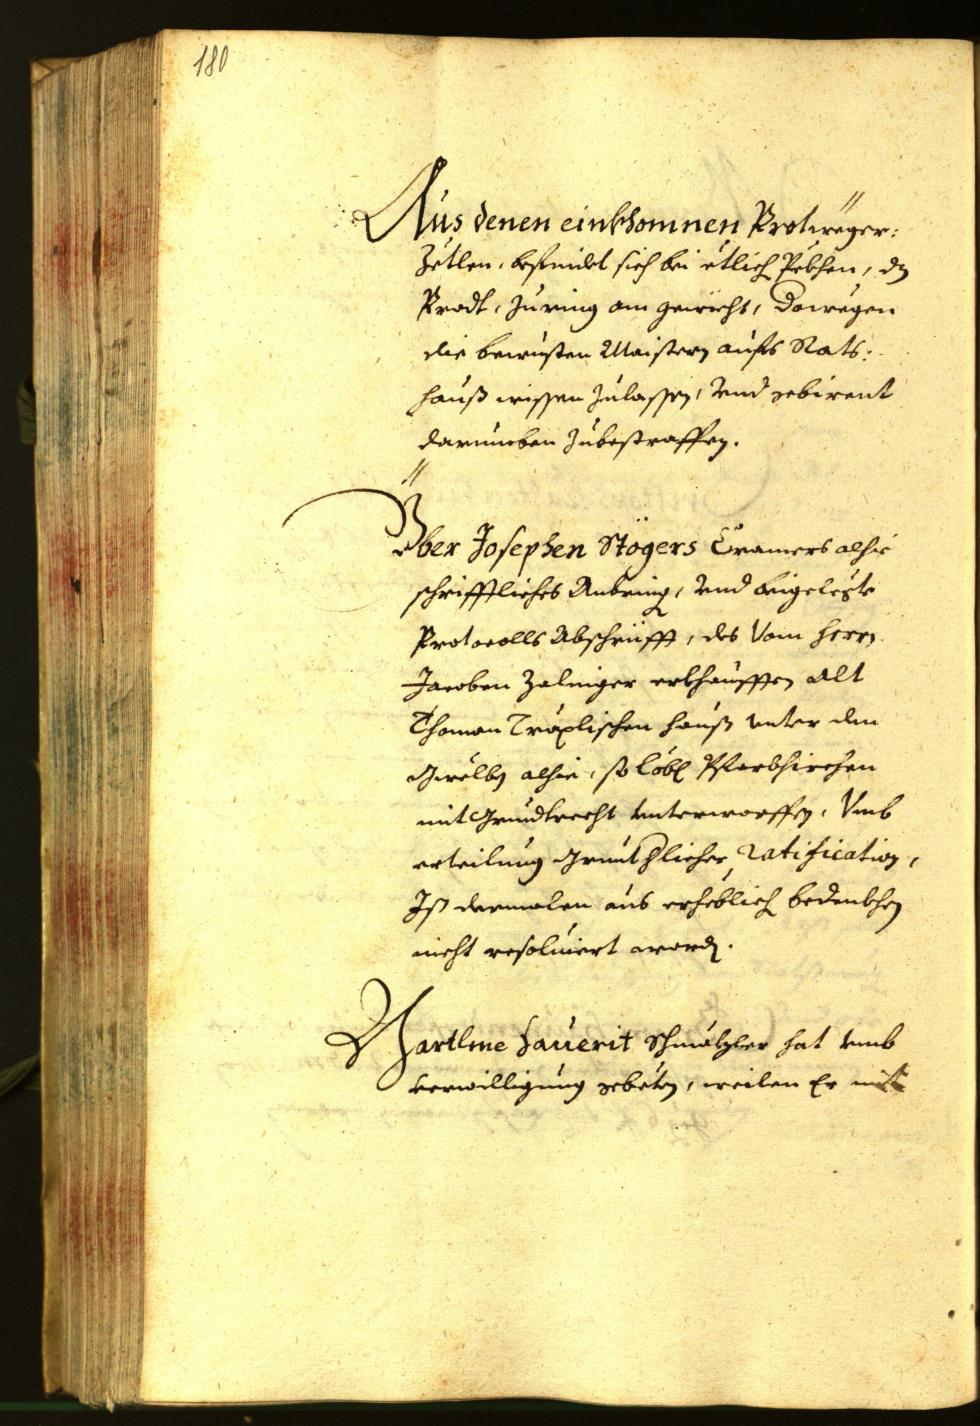 180
Aus denen einkhomnen Protwëger:
Zëtlen, befindet sich bei etlich Pekhen, dz
Prodt, zu ring am gewicht, Dawegen
die bewusten Maistern aufs Rats:
hauß wissen zulassen, vnd gebirent
darumben zubestraffen.
Über Josephen Stögers Cramers alhie
schrifftliches Anbring, vnd beigelegte
Protocolls Abschrüfft, des vom herrn
Jacoben Zalniger erkhaufften alt
Thoman Träxlischen hauß vnter den
Gwelbn alhie, so löbl Pfarrkhirchen
mit Grundtrecht vnterworffen, Vmb
erteilung Gruntherlicher ratification,
Ist dermalen aus erheblich bedenkhen
nicht resoluiert word.
Bartlme Sauerit Schmalzler hat vmb
verwilligung gebëten, weilen Er mit